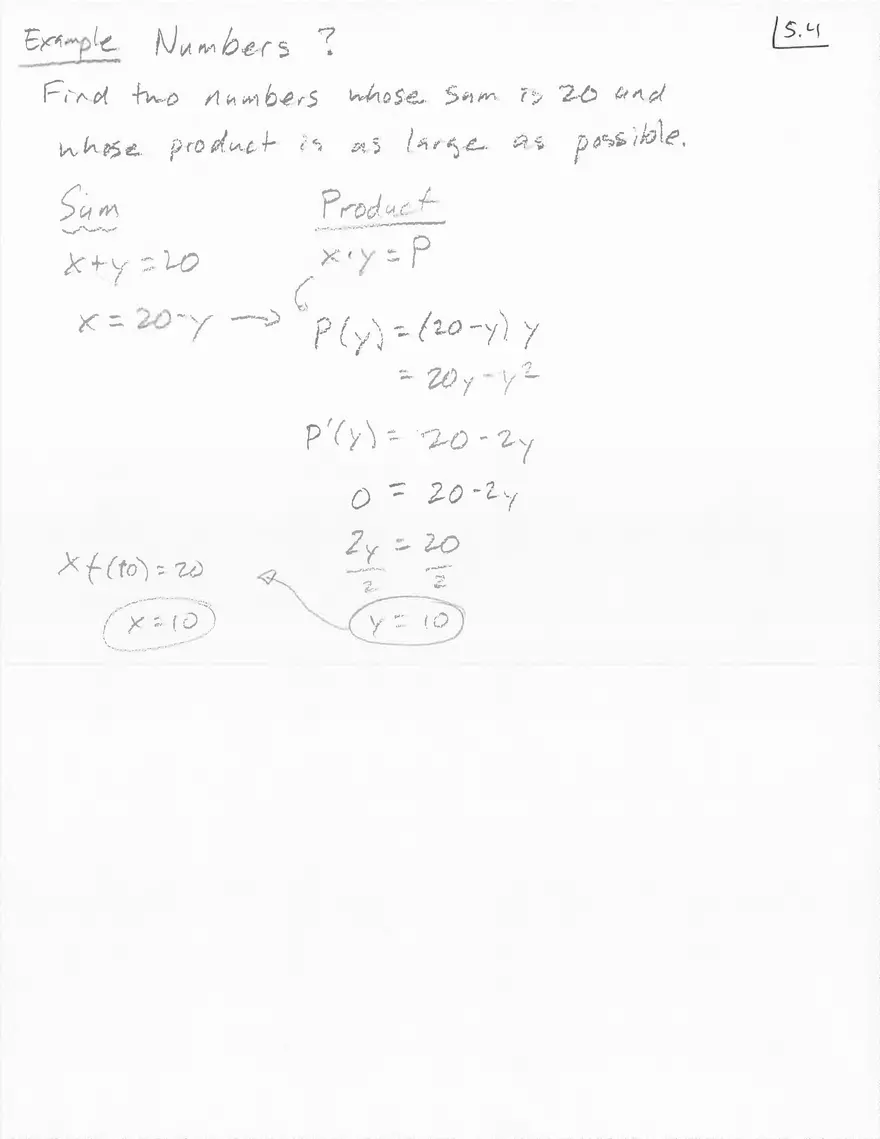 Example Numbers ?
5.4
Find two numbers whose sum is 20 and
whose product is as large as possible.
Sum
x+y=20
x=20-y →
Product
x·y=P
P(y)=(20-y)y
=20y-y²
P'(y)=20-2y
0=20-2y
2y=20
2 2
y=10
x+(10)=20
x=10